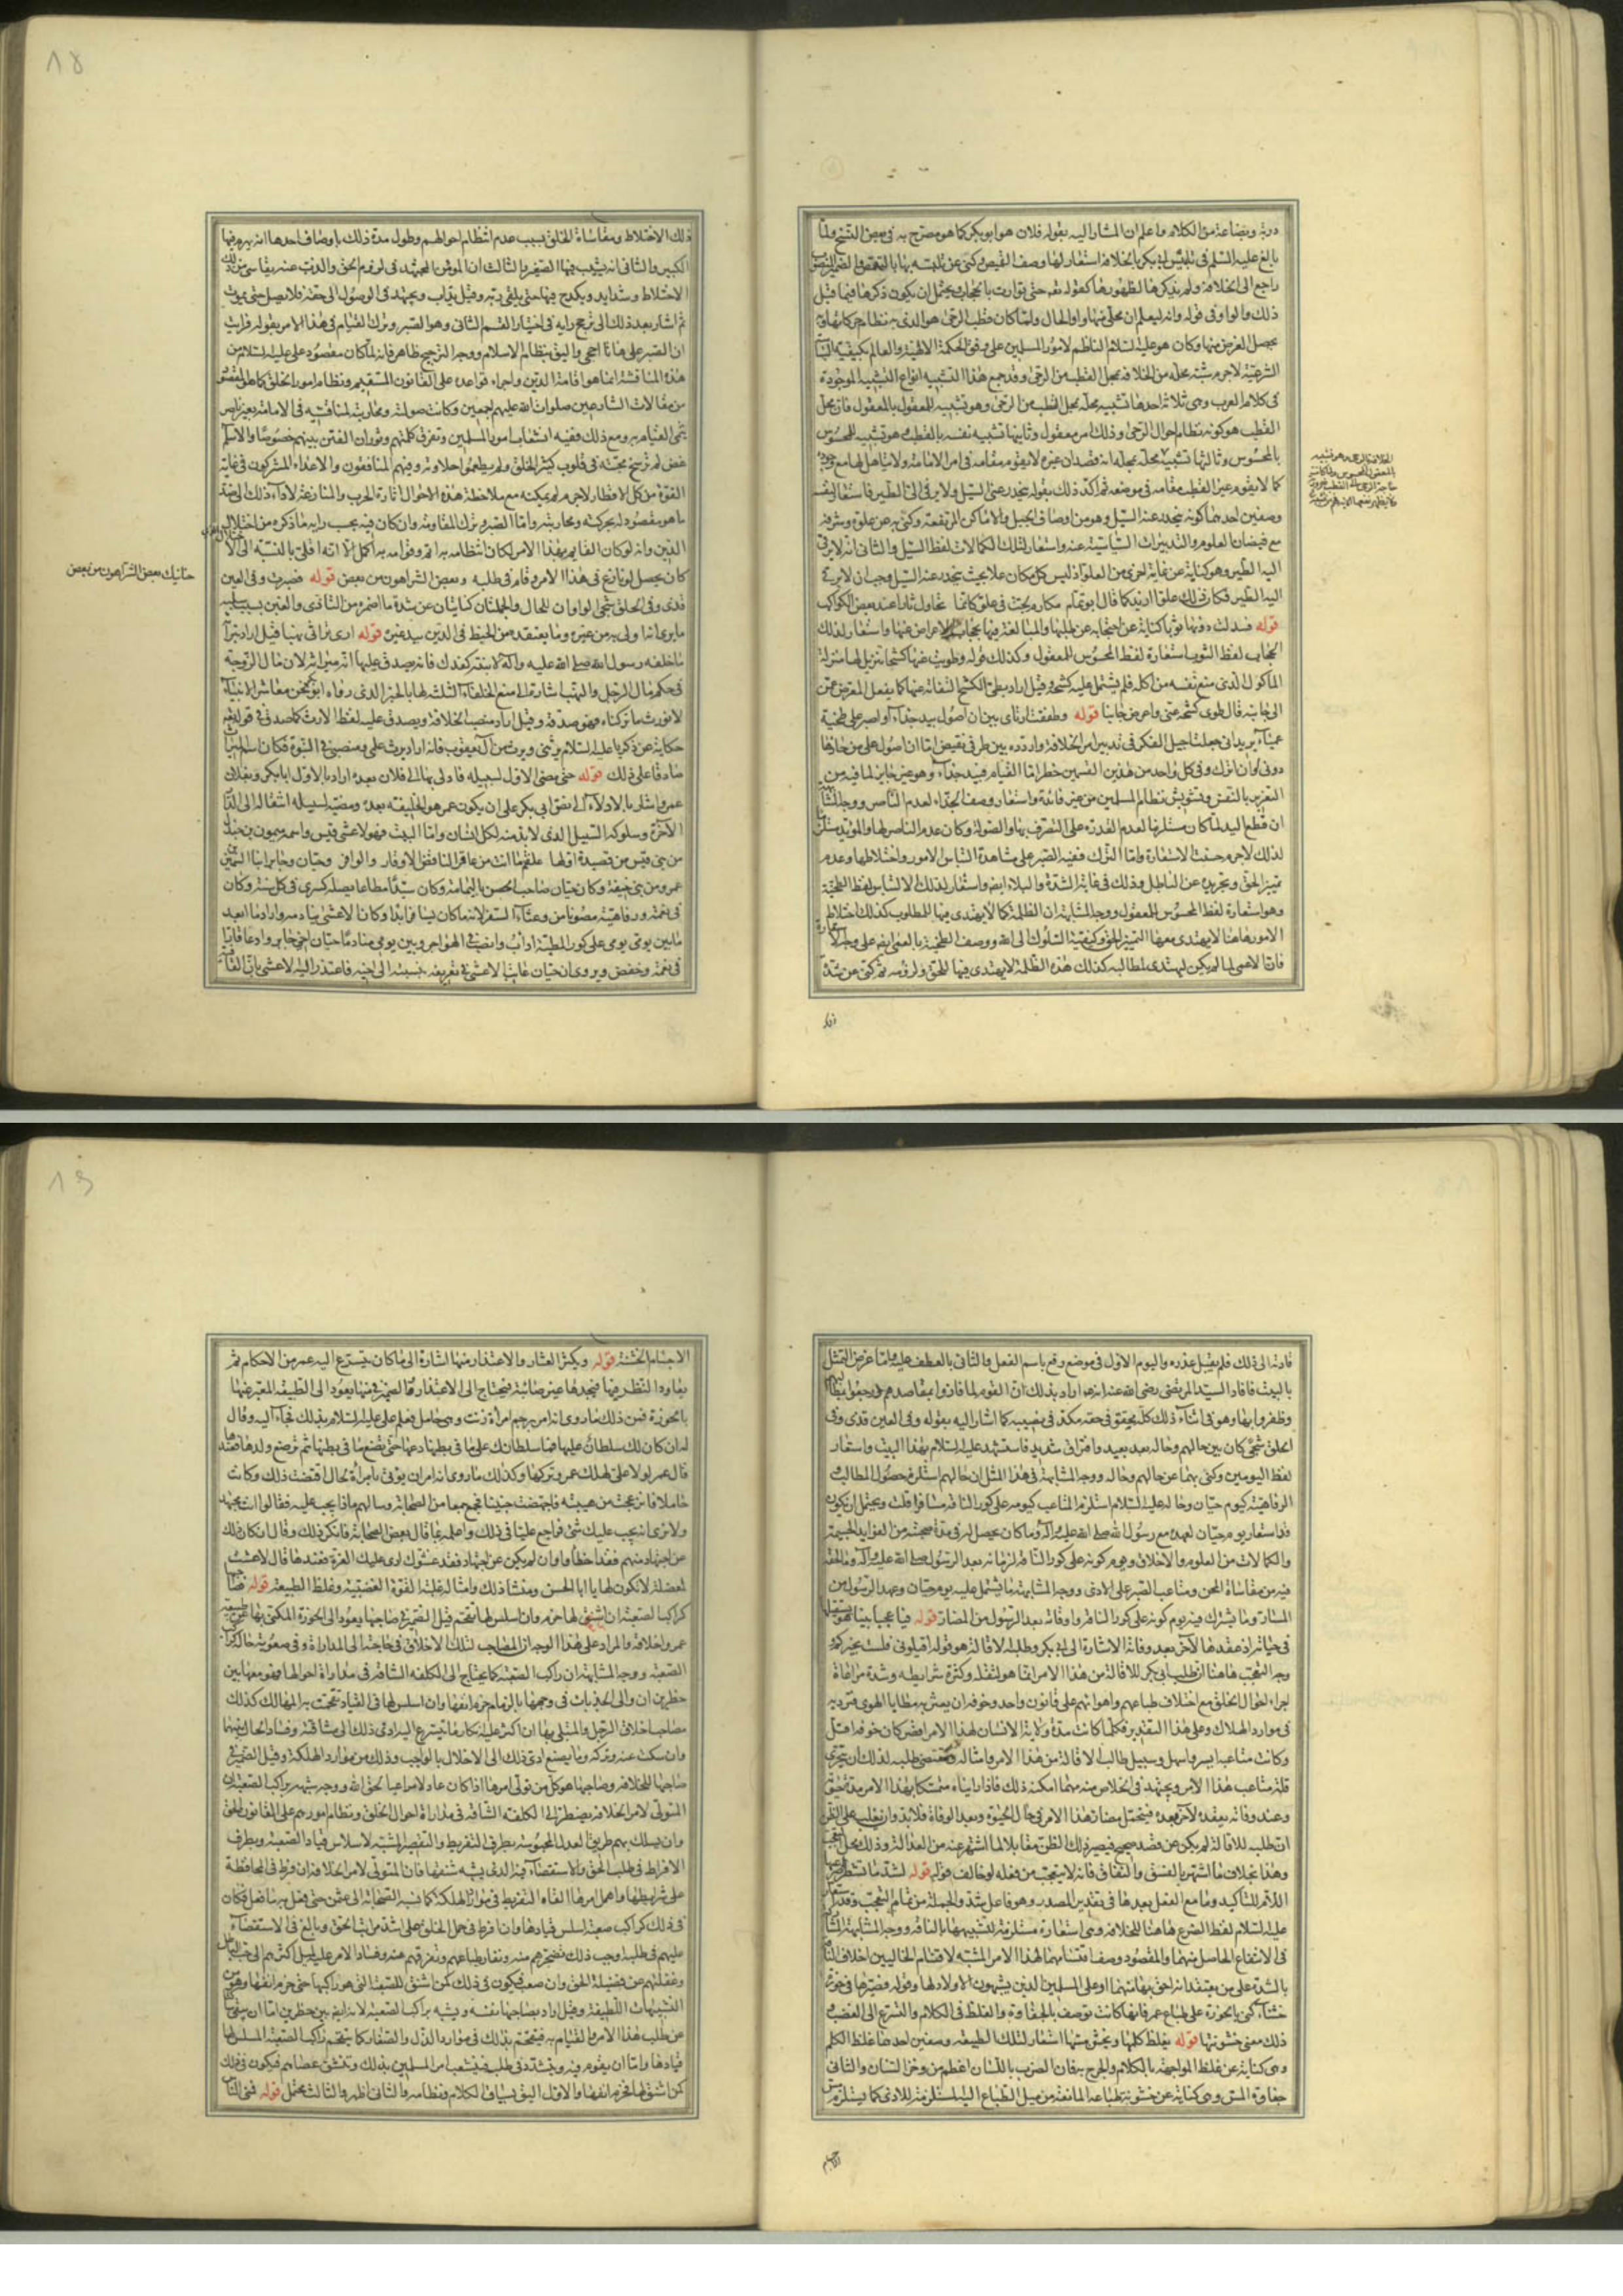 دربة وبضاعة من الكلام واعلم ان المشار اليه بقوله فلان هو ابو بكر كما هو مصرح به فى بعض النسخ ولما
راجع الى الخلافة ولم يذكرها لظهورها كقوله تعالى حتى توارت بالحجاب ويحتمل ان يكون ذكرها فيما قبل
ذلك والواو فى قوله وانه ليعلم ان محلى منها واو الحال ولما كان قطب الرحى هو الذى به نظام حركاتها وبه
يحصل الغرض منها وكان هو عليه السلام الناظم لامور المسلمين على وفق الحكمة الالهية والعالم بكيفية السياسة
الشرعية لاجرم شبه محله من الخلافة بمحل القطب من الرحى وقد جمع هذا التشبيه انواع التشبيه الموجودة
فى كلام العرب وهى ثلاثة احدها تشبيه محله بمحل القطب من الرحى وهو تشبيه للمعقول بالمعقول فان محل
القطب هو كونه نظام احوال الرحى وذلك امر معقول وثانيها تشبيه نفسه بالقطب وهو تشبيه للمحسوس
بالمحسوس وثالثها تشبيه
كما لا يقوم غير القطب مقامه فى موضعه ثم اكد ذلك بقوله ينحدر عنى السيل ولا يرقى الى الطير فاستعار لنفسه
وصفين احدهما كونه ينحدر عنه السيل وهو من اوصاف الجبل والاماكن المرتفعة وكنى به عن علوه وشرفه
مع فيضان العلوم والتدبيرات السياسية عنه واستعار لتلك الكمالات لفظ السيل والثانى انه لا يرقى
اليه الطير وهو كناية عن غاية اخرى من العلو اذ ليس كل مكان علا بحيث ينحدر عنه السيل وجب ان لا يرقى
اليه الطير فكان ذلك علوا ازيد كما قال ابو تمام مكارم لجت فى علو كانما تحاول ثارا عند بعض الكواكب
قوله فسدلت دونها ثوبا كناية عن احتجابه عن طلبها والمبالغة فيها بحجاب الاعراض عنها واستعار لذلك
الحجاب لفظ الثوب استعارة لفظ المحسوس للمعقول وكذلك قوله وطويت عنها كشحا تنزيل لها منزلة
الماكول الذى منع نفسه من اكله فلم يشتمل عليه كشحه وقيل اراد بطى الكشح التفاته عنها كما يفعل المعرض عمن
الى جانبه قال طوى كشحه عنى واعرض جانبا قوله وطفقت ارتاى بين ان اصول بيد جذاء او اصبر على طخية
عمياء يريد انى جعلت اجيل الفكر فى تدبير امر الخلافة واردده بين طرفى نقيض اما ان اصول على من حازها
دونى او ان اترك وفى كل واحد من هذين القسمين خطر اما القيام فبيد جذاء وهو غير جائز لما فيه من
التغرير بالنفس وتشويش نظام المسلمين من غير فائدة واستعار وصف الجذاء لعدم الناصر ووجه المشابهة
ان قطع اليد لما كان مستلزما لعدم القدرة على التصرف بها والصولة وكان عدم الناصر لها والمؤيد مستلزما
لذلك لاجرم حسنت الاستعارة واما الترك ففيه الصبر على مشاهدة التباس الامور واختلاطها وعدم
تمييز الحق وتجريده عن الباطل وذلك فى غاية الشدة والبلاء ايضا واستعار لذلك الالتباس لفظ الطخية
وهو استعارة لفظ المحسوس للمعقول ووجه المشابهة ان الظلمة كما لا يهتدى فيها للمطلوب كذلك اختلاط
الامور هاهنا لا يهتدى معها لتمييز الحق وكيفية السلوك الى الله ووصف الطخية بالعمى ايضا على وجه الاستعارة
فان الاعمى لما لم يكن ليهتدى لمطالبه كذلك هذه الظلمة لا يهتدى فيها للحق ولزومه ثم كنى عن شدة
18
ذلك الاختلاط ومقاساة الخلق بسبب عدم انتظام احوالهم وطول مدة ذلك باوصاف احدها انه يهرم فيها
الكبير والثانى انه يشيب فيها الصغير والثالث ان المؤمن المجتهد فى لزوم الحق والذب عنه يقاسى من ذلك
الاختلاط وشدايد ويكدح فيها حتى يلقى ربه وقيل يداب ويجتهد فى الوصول الى حقه فلا يصل حتى يموت
ثم اشار بعد ذلك الى ترجيح رايه فى اختيار القسم الثانى وهو الصبر وترك القيام فى هذا الامر بقوله فرايت
ان الصبر على هاتا احجى واليق بنظام الاسلام ووجه الترجيح ظاهر فانه لما كان مقصود على عليه السلام من
هذه المناقشة انما هو اقامة الدين واجراء قواعده على القانون المستقيم ونظام امور الخلق كما هو المقصود
من مقالات الشارعين صلوات الله عليهم اجمعين وكانت صولته ومحاربته لمنافسيه فى الامامة بغير ناصر
غض لم ترسخ محبته فى قلوب كثير الخلق ولم يطعموا حلاوته وفيهم المنافقون والاعداء المشركون فى غاية
القوة من كل الاقطار لاجرم لم يمكنه مع ملاحظة هذه الاحوال اثارة الحرب والمنازعة لاداء ذلك الى ضد
ما هو مقصود له بحركته ومحاربته واما الصبر وترك المقاومة وان كان فيه بحسب رايه ما ذكره من اختلال
الدين وانه لو كان القائم بهذا الامر لكان انتظامه به اتم وقوامه به اكمل الا انه اقل بالنسبة الى الاختلال الذى
كان يحصل لو نازع فى هذا الامر وقام فى طلبه وبعض الشر اهون من بعض قوله فصبرت وفى العين
قذى وفى الحلق شجى الواوان للحال والجملتان كنايتان عن شدة ما اضمره من التاذى والغبن بسبب سلبه
ما يرى انه اولى به من غيره وما يعتقد من الخبط فى الدين بيد غيره قوله ارى تراثى نهبا قيل اراد بتراثه
ما خلفه رسول الله صلى الله عليه وآله لابنته كفدك فانه يصدق عليها انه ميراثه لان مال الزوجة
فى حكم مال الرجل والنهب اشارة الى منع الخلفاء الثلثة لها بالخبر الذى رواه ابو بكر نحن معاشر الانبياء
لا نورث ما تركناه فهو صدقة وقيل اراد منصب الخلافة ويصدق عليه لفظ الارث كما صدق فى قوله تعالى
حكاية عن زكريا عليه السلام يرثنى ويرث من آل يعقوب فانه اراد يرث علمى ومنصبى فى النبوة فكان اسم الميراث
صادقا على ذلك قوله حتى مضى الاول لسبيله فادلى بها الى فلان بعده اراد بالاول ابا بكر وبفلان
عمر واشار بالادلاء الى نص ابى بكر على ان يكون عمر هو الخليفة بعده ومضيه لسبيله انتقاله الى الدار
الآخرة وسلوكه السبيل الذى لا بد منه لكل انسان واما البيت فهو لاعشى قيس واسمه ميمون بن جندل
من بنى قيس من قصيدة اولها علقم ما انت من عامر الناقض الاوتار والواتر وحيان وجابر ابنا السمين
عمرو من بنى حنيفة وكان حيان صاحب الحصن باليمامة وكان سيدا مطاعا يصله كسرى فى كل سنة وكان
فى نعمة ورفاهية مصونا من وعثاء السفر لانه ما كان يسافر ابدا وكان الاعشى ينادمه واراد ما ابعد
ما بين يومى يومى على كور المطية اداب وانصب فى الهواجر وبين يومى منادما حيان اخى جابر وادعا قارا
فى نعمة وخفض ويروى ان حيان عاتب الاعشى فى تعريفه بنسبته الى اخيه فاعتذر اليه الاعشى بان القافية
حنانيك بعض الشر اهون من بعض
قادته الى ذلك فلم يقبل عذره واليوم الاول فى موضع رفع باسم الفعل والثانى بالعطف عليه واما غرض التمثل
بالبيت فافاد السيد المرتضى رضى الله عنه انه اراد بذلك ان القوم لما فازوا بمقاصدهم
وظفروا بها وهو فى اثناء ذلك كله محقق فى حقه مكذ فى نصيبه كما اشار اليه بقوله وفى العين قذى وفى
الحلق شجى كان بين حالهم وحاله بعد بعيد وافتراق شديد فاستشهد عليه السلام بهذا البيت واستعار
لفظ اليومين وكنى بهما عن حالهم وحاله ووجه المشابهة فى هذا المثل ان حالهم استلزم حصول المطالب
الرفاهية كيوم حيان وحاله عليه السلام استلزم المتاعب كيومه على كور الناقة مسافرا قلت ويحتمل ان يكون
قد استعار يوم حيان لعهده مع رسول الله صلى الله عليه وآله وما كان يحصل له فى مدة صحبته من الفوايد الجسيمة
والكمالات من العلوم والاخلاق ويوم كونه على كور الناقة لزمانه بعد الرسول صلى الله عليه وآله وما لحقه
فيه من مقاساة المحن ومتاعب الصبر على الاذى ووجه المشابهة ما يشتمل عليه يوم حيان وعهد الرسول من
المسار وما يشترك فيه يوم كونه على كور الناقة واوقاته بعد الرسول من المضار قوله فيا عجبا بينا هو يستقيلها
فى حياته اذ عقدها لآخر بعد وفاته الاشارة الى ابى بكر وطلبه الاقالة هو قوله اقيلونى فلست بخيركم
وجه التعجب هاهنا ان طلب ابى بكر للاقالة من هذا الامر انما هو لثقله وكثرة شرايطه وشدة مراعاة
اجراء احوال الخلق مع اختلاف طباعهم واهوائهم على قانون واحد وخوفه ان يعثر به مطايا الهوى فترديه
فى موارد الهلاك وعلى هذا التقدير فكلما كانت مدة ولاية الانسان لهذا الامر اقصر كان خوفه اقل
وكانت متاعبه ايسر واسهل وسبيل طالب الاقالة من هذا الامر وامثاله
قلة متاعب هذا الامر ويجتهد فى الخلاص منه مهما امكنه ذلك فاذا رايناه متمسكا بهذا الامر مدة حيوته
وعند وفاته يعقده لآخر بعده فيتحمل مضار هذا الامر فى حال الحيوة وبعد الوفاة فلا بد وان يغلب على الظن
ان طلبه للاقالة لم يكن عن قصد صحيح فيصير ذلك الظن مقابلا لما اشتهر عنه من العدالة وذلك محل التعجب
وهذا بخلاف ما اشتهر بالفسق والنفاق فانه لا يتعجب من فعله لو خالف قوله قوله لشد ما تشطرا ضرعيها
اللام للتاكيد وما مع الفعل بعدها فى تقدير المصدر وهو فاعل شد والجملة من تمام التعجب وقد استعار
عليه السلام لفظ الضرع هاهنا للخلافة وهى استعارة مستلزمة لتشبيهها بالناقة ووجه المشابهة المشاركة
فى الانتفاع الحاصل منهما والمقصود وصف اقتسامهما لهذا الامر المشبه لاقتسام الحالبين اخلاف الناقة
بالشدة على من يعتقد انه احق بها منهما او على المسلمين الذين يشبهون الاولاد لها وقوله فصيرها فى حوزة
خشناء كنى بالحوزة على طباع عمر فانها كانت توصف بالجفاوة والغلظ فى الكلام والتسرع الى الغضب و
ذلك معنى خشونتها قوله يغلظ كلمها ويخشن مسها استعار لتلك الطبيعة وصفين احدهما غلظ الكلم
وهى كناية عن غلظ المواجهة بالكلام والجرح به فان الضرب باللسان اعظم من وخز السنان والثانى
جفاوة المس وهى كناية عن خشونة طباعه المانعة من ميل الطباع اليه المستلزمة للاذى كما يستلزم مس
19
الاجسام الخشنة قوله ويكثر العثار والاعتذار منها اشارة الى ما كان يتسرع اليه عمر من الاحكام ثم
يعاود النظر فيها فيجدها غير صائبة فيحتاج الى الاعتذار فالضمير فى منها يعود الى الطبيعة المعبر عنها
بالحوزة فمن ذلك ما روى انه امر برجم امرأة زنت وهى حامل فعلم على عليه السلام بذلك فجاء اليه وقال
له ان كان لك سلطان عليها فما سلطانك على ما فى بطنها دعها حتى تضع ما فى بطنها ثم ترضع ولدها فعندها
قال عمر لولا على لهلك عمر وتركها وكذلك ما روى انه امر ان يؤتى بامرأة لحال اقتضت ذلك وكانت
حاملا فانزعجت من هيبته فاجهضت جنينا فجمع جمعا من الصحابة وسالهم ماذا يجب عليه فقالوا انت مجتهد
ولا نرى انه يجب عليك شئ فراجع عليا فى ذلك واعلمه بما قال بعض الصحابة فانكر ذلك وقال ان كان ذلك
عن اجتهاد منهم فقد اخطأوا وان لم يكن عن اجتهاد فقد غشوك ارى عليك الغرة فعندها قال لا عشت
لمعضلة لا تكون لها يا ابا الحسن ومنشا ذلك وامثاله غلبة القوة الغضبية وغلظ الطبيعة قوله فصاحبها
كراكب الصعبة ان اشنق لها خرم وان اسلس لها تقحم قيل الضمير فى صاحبها يعود الى الحوزة المكنى بها عن طبيعة
عمر واخلاقه والمراد على هذا الوجه ان المصاحب لتلك الاخلاق فى حاجته الى المداراة وفى صعوبة حاله كراكب
الصعبة ووجه المشابهة ان راكب الصعبة كما يحتاج الى الكلفة الشاقة فى مداراة احوالها فهو معها بين
خطرين ان والى الجذبات فى وجهها بالزمام خرم انفها وان اسلس لها فى القياد تقحمت به المهالك كذلك
مصاحب اخلاق الرجل والمبتلى بها ان اكثر عليه انكار ما يتسرع اليه ادى ذلك الى مشاقته وفساد الحال بينهما
وان سكت عنه وتركه وما يصنع ادى ذلك الى الاخلال بالواجب وذلك من موارد الهلكة وقيل الضمير فى
صاحبها للخلافة وصاحبها هو كل من تولى امرها اذا كان عادلا مراعيا لحق الله ووجه شبهه براكب الصعبة ان
المتولى لامر الخلافة يضطر الى الكلفة الشاقة فى مداراة احوال الخلق ونظام امورهم على القانون الحق
وان يسلك بهم طريق العدل المحبوسة بطرفى التفريط والتقصير المشبه لاسلاس قياد الصعبة وبطرف
الافراط فى طلب الحق والاستقصاء فيه الذى يشبه شنقها فان المتولى لامر الخلافة ان فرط فى المحافظة
على شرايطها واهمل امرها القاه التفريط فى موارد الهلكة كما نسبه الصحابة الى عثمن حتى فعل به ما فعل فكان
فى ذلك كراكب صعبة اسلس قيادها وان افرط فى حمل الخلق على اشد مراتب الحق وبالغ فى الاستقصاء
عليهم فى طلبه اوجب ذلك تضجرهم منه ونفار طباعهم وتفرقهم عنه وفساد الامر عليه لميل اكثرهم الى حب الباطل
وغفلتهم عن فضيلة الحق وان صعب فيكون فى ذلك كمن اشنق للصعبة التى هو راكبها حتى خرم انفها وهو من
التشبيهات اللطيفة وقيل اراد بصاحبها نفسه ويشبه براكب الصعبة لانه ايضا بين خطرين اما ان يبقى
عن طلب هذا الامر والقيام به فيتقحم بذلك فى موارد الذل والصغار كما يتقحم راكب الصعبة المسلس لها
قيادها واما ان يقوم فيه ويتشدد فى طلبه فينشعب امر المسلمين بذلك وتنشق عصاهم فيكون فى ذلك
كمن اشنق لها فخرم انفها والاول اليق بسياق الكلام ونظامه والثانى اظهر والثالث محتمل قوله فمنى الناس